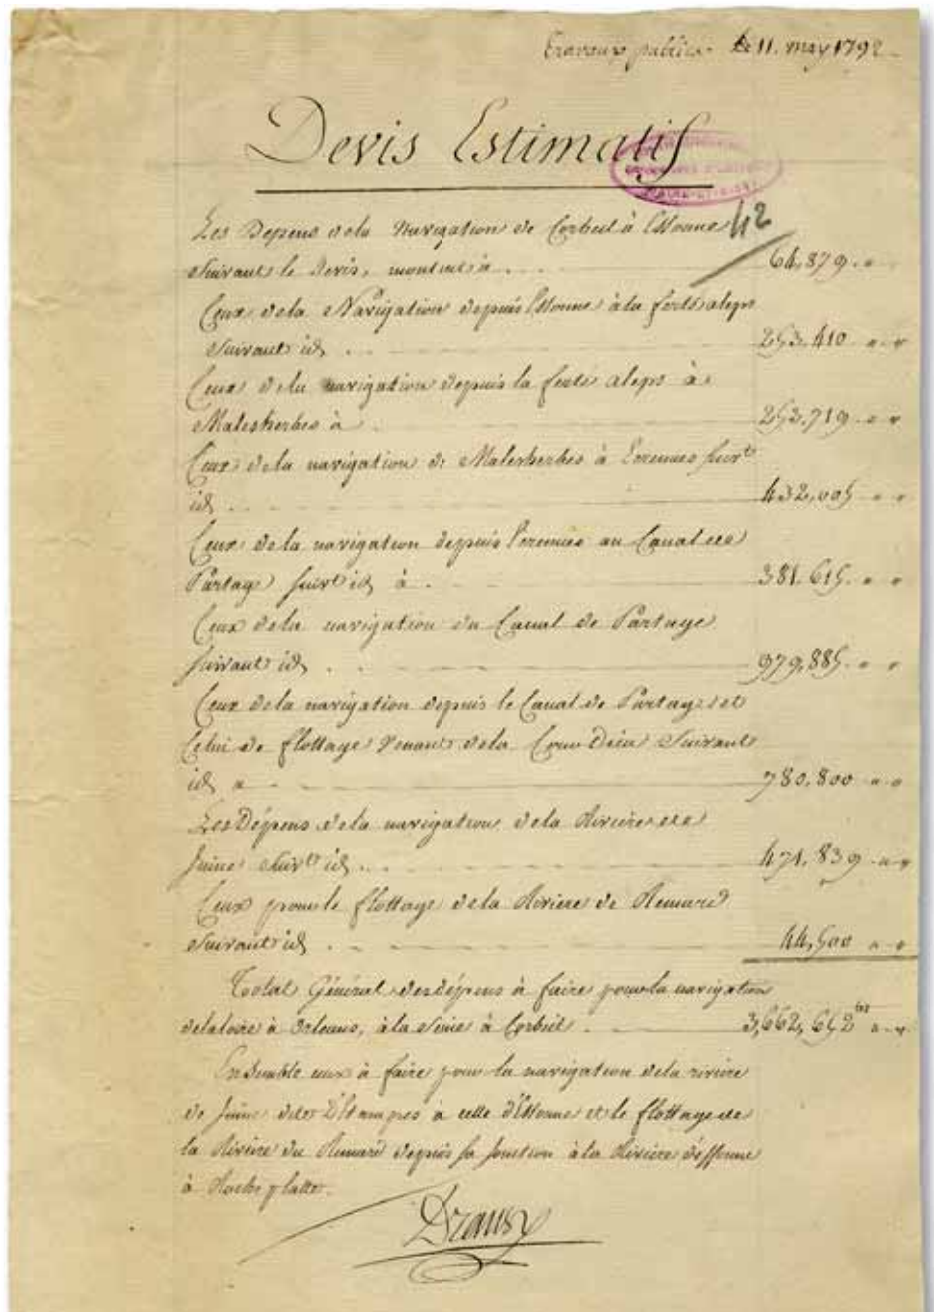 Travaux publics. Le 11. may 1792
Devis Estimatif
42
Les Depens de la Navigation de Corbeil à Essonne
Suivant le Devis, montent à . . . 64,879. "
Ceux de la Navigation depuis Essonne à la ferté aleps
Suivant id . . 253.410 " "
Ceux de la navigation depuis la ferté aleps à
Malesherbes à . 253.719 " "
Ceux de la navigation de Malesherbes à suivt
id . . 432,005 " "
Ceux de la navigation depuis au Canal de
Partage suivt id à . 381.615. " "
Ceux de la navigation du Canal de Partage
suivant id . . 979,885. " "
Ceux de la navigation depuis le Canal de Partage et
Celui de flottage Venant de la Suivant
id a . 780,800 " "
Les Dépens de la navigation de la Riviere de
Juine Suivt id . . 471,839 " "
Ceux pour le flottage de la Riviere de Remard
Suivant id . . 44,500 " "
Total Général des dépens à faire pour la navigation
de la loire à Orleans, à la Seine à Corbeil . 3,662,652 " "
Ensemble ceux à faire pour la navigation de la riviere
de Juine à celle d'Essonne et le flottage de
la Riviere du Remard depuis sa Jonction à la Riviere d'Essonne
à
Dransy